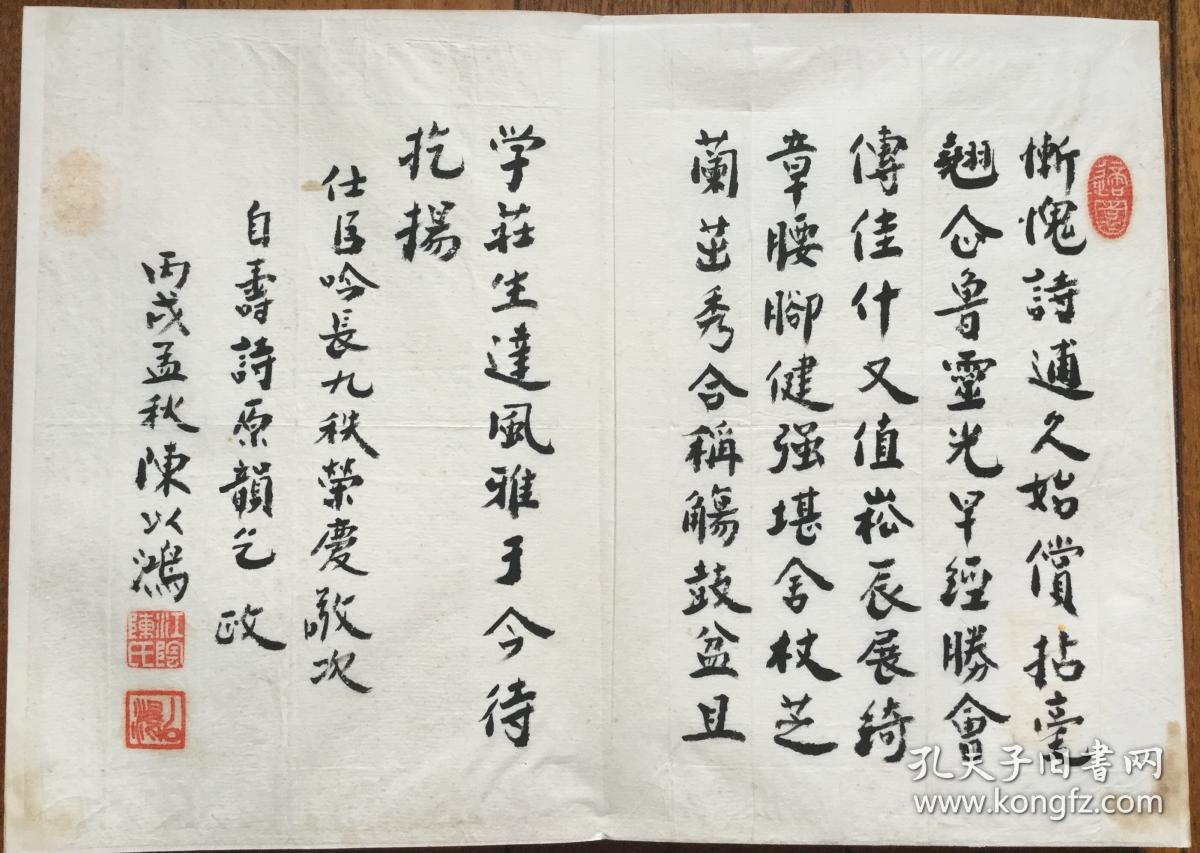 慚愧詩逋久始償拈毫
翹企魯靈光早經勝會
傳佳什又值崧辰展綺
章腰腳健强堪舍杖芝
蘭茁秀合稱觴鼓盆且
学莊生達風雅于今待
扢揚
仕吟長九秩榮慶敬次
自壽詩原韻乞 政
丙戌孟秋陳以鴻
江陰陳氏
以鴻
孔夫子旧书网
www.kongfz.com